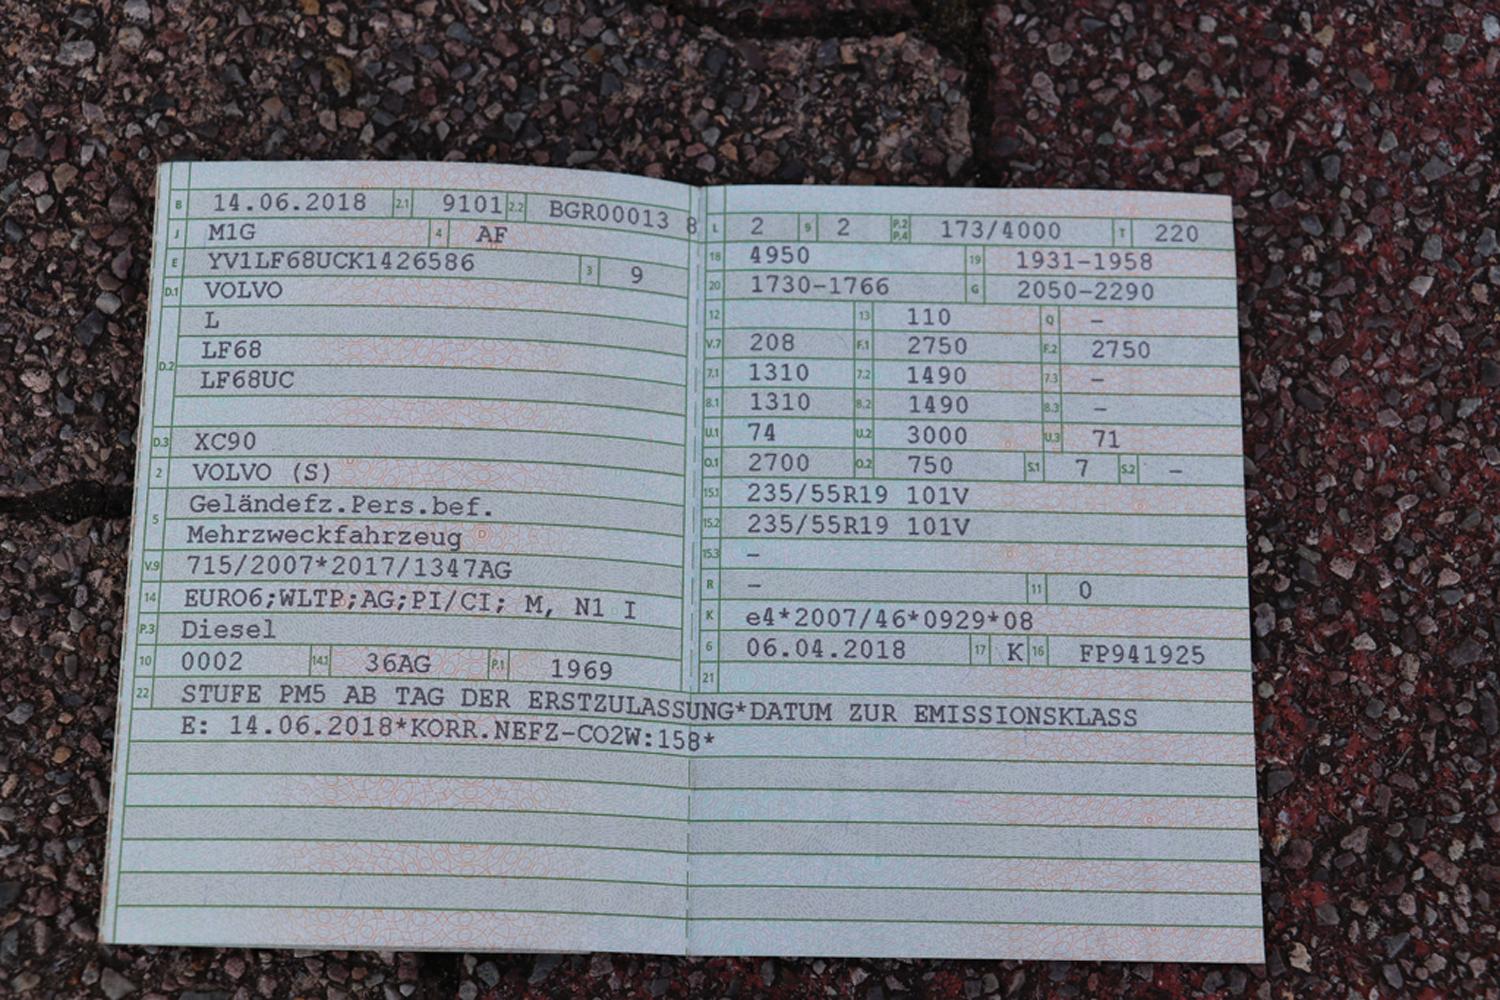 B 14.06.2018 2.1 9101 2.2 BGR00013 8
J M1G 4 AF
E YV1LF68UCK1426586 3 9
D.1 VOLVO
L
D.2 LF68
LF68UC
D.3 XC90
2 VOLVO (S)
5 Geländefz.Pers.bef.
Mehrzweckfahrzeug
V.9 715/2007*2017/1347AG
14 EURO6;WLTP;AG;PI/CI; M, N1 I
P.3 Diesel
10 0002 14.1 36AG P.1 1969
L 2 9 2 P.2 P.4 173/4000 T 220
18 4950 19 1931-1958
20 1730-1766 G 2050-2290
12 13 110 Q -
V.7 208 F.1 2750 F.2 2750
7.1 1310 7.2 1490 7.3 -
8.1 1310 8.2 1490 8.3 -
U.1 74 U.2 3000 U.3 71
O.1 2700 O.2 750 S.1 7 S.2 -
15.1 235/55R19 101V
15.2 235/55R19 101V
15.3 -
R - 11 0
K e4*2007/46*0929*08
6 06.04.2018 17 K 16 FP941925
21
22 STUFE PM5 AB TAG DER ERSTZULASSUNG*DATUM ZUR EMISSIONSKLASS
E: 14.06.2018*KORR.NEFZ-CO2W:158*